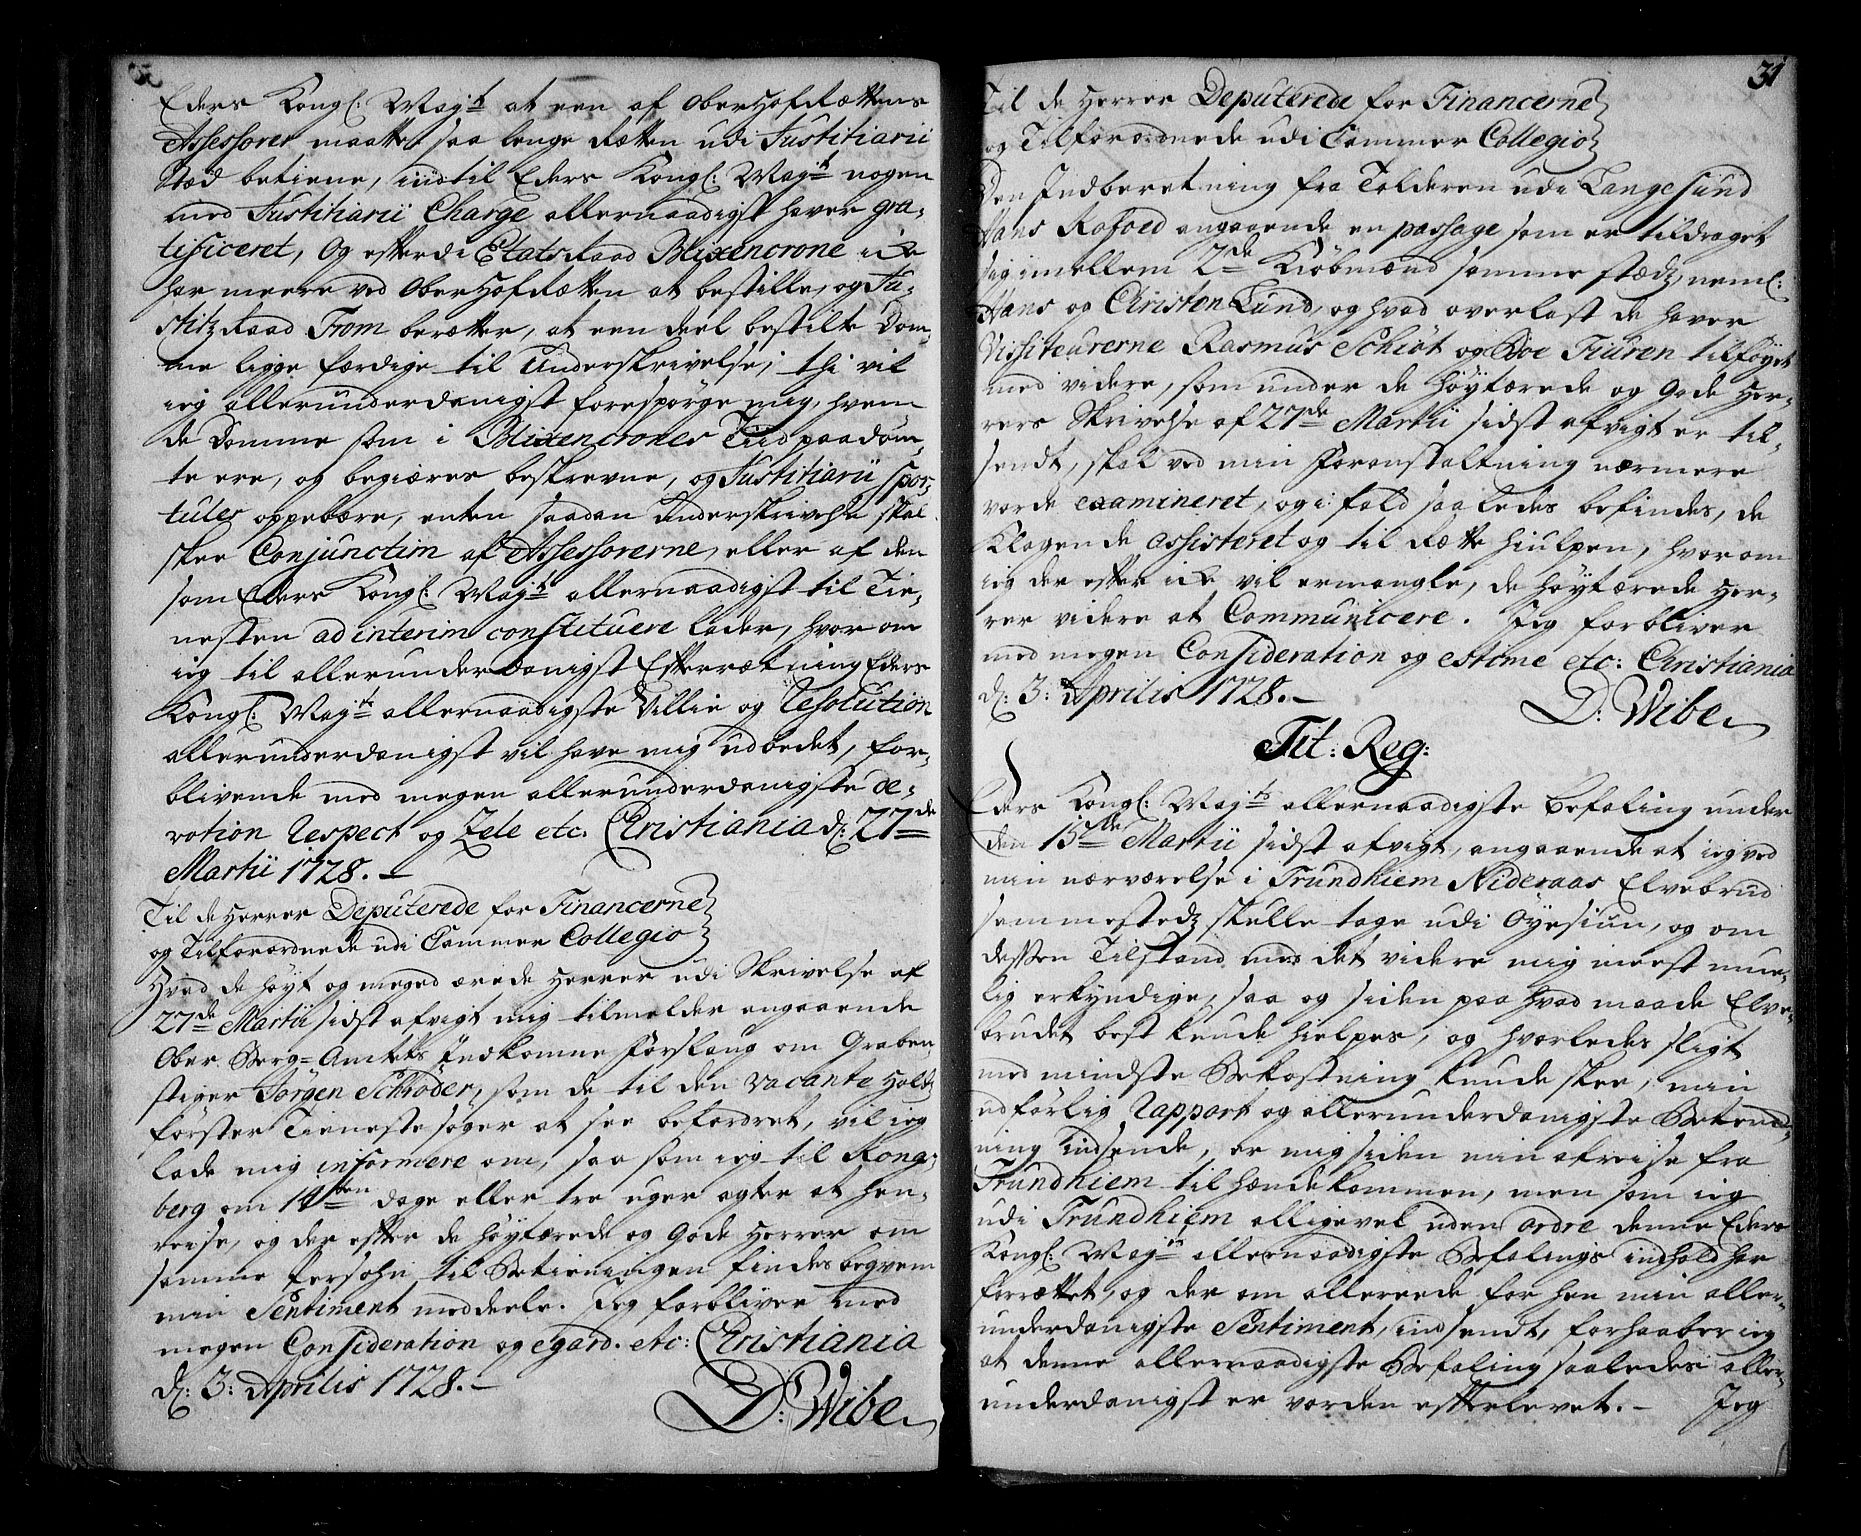 Eders Kongl: Mayt at een af OberHofRættens
Assessorer maatte saa lenge Rætten udi Justitiarii
Stæd betiene, indtil Eders Kongl: Mayt nogen
med Justitiarii Charge allernaadigst haver gra-
tificeret, Og efterdi EtatsRaad Blixencrone icke
har meere ved OberHofRætten at bestille, og Ju-
stitzRaad From beretter, at een deel bestilte Dom-
me ligge færdige til Underskrivelse; thi vil
ieg allerunderdanigst forespørge mig, hvem
de Domme som i Blixencrones Tiid paadøm-
te ere, og begiæres beskrevne, og Justitiarii Spor-
tuler oppebære, enten saadan Underskrivelse skal
skee Conjunctim af Assessorerne, eller af den
som Eders Kongl: Mayt allernaadigst til Tie-
nesten ad interim constituere lader, hvor om
ieg til allerunderdanigst Efterrætning Eders
Kongl: Mayts allernaadigste Villie og Resolution
allerunderdanigst vil have mig udbedet, for-
blivende med megen allerunderdanigste de-
votion Respect og Zele etc. Christiania d: 27de
Martii 1728.
Til de Herrer Deputerede for Financerne
og Tilforordnede udi Cammer Collegio
Hvad de høyt og meged ærede Herrer udi Skrivelse af
27de Martii sidst afvigt mig tilmelder angaaende
Ober Berg-Amtets Indkomne Forslaug om Graben
stiger Jørgen Schrøder, som de til den vacante Holtz
förster Tieneste søger at see befordret, vil ieg
lade mig informere om, saa som ieg til Kongs-
berg om 14ten dage eller tre uger agter at hen-
reise, og der efter de Høytærede og Gode Herrer om
samme Persohn til Betieningen findes beqvem
min Sentiment meddeele. Jeg forbliver med
megen Consideration og egard. etc: Christiania
d: 3: Aprilis 1728.
D: Wibe
31
Til de Herrer Deputerede for Financerne
og Tilforordnede udi Cammer Collegio
Den Indberetning fra Tolderen udi Langesund
Hans Rafoed angaaende en passage som er tildraget
sig imellem 2de Kiøbmænd samme stædz, neml:
Hans og Christen Lund, og hvad overlast de haver
Vissiteurerne Rasmus Schiøt og Boe Tiuren tilføyet
med videre, som under de Høytærede og Gode Her-
rers Skrivelse af 27de Martii sidst afvigt er til-
sendt, skal ved min Foranstaltning nærmere
vorde examineret, og i fald saaledes befindes, de
Klagende assisteret og til Rætte hiulpen, hvorom
ieg der efter icke vil ermangle, de Høytærede Her-
rer videre at Communicere. Jeg forbliver
med megen Consideration og estime etc: Christiania
d: 3: Aprilis 1728.
D: Wibe
Tit: Reg:
Eders Kongl: Mayts allernaadigste Befaling under
den 15de Martii sidst afvigt, angaaende at ieg ved
min nærværelse i Trundhiem Nideraas Elvebrud
sammestedz skulle tage udi Øyesiun, og om
dessen Tilstand med det videre mig meest mue-
lig erkyndige, saa og siden paa hvad maade Elve-
brudet best kunde hielpes, og hvorledes sligt
med mindste Bekostning kunde skee, min
udførlig Rapport og allerunderdanigste Betænk-
ning indsende, er mig siden min afreise fra
Trundhiem tilhændekommen, men som ieg
udi Trundhiem alligevel uden ordre denne Eders
Kongl: Mayts allernaadigste Befalings indhold har
forrættet, og der om allereede for hen min aller-
underdanigste Sentiment, indsendt, forhaaber ieg
at denne allernaadigste Befaling saaledes aller-
underdanigst er vorden efterlevet. Jeg